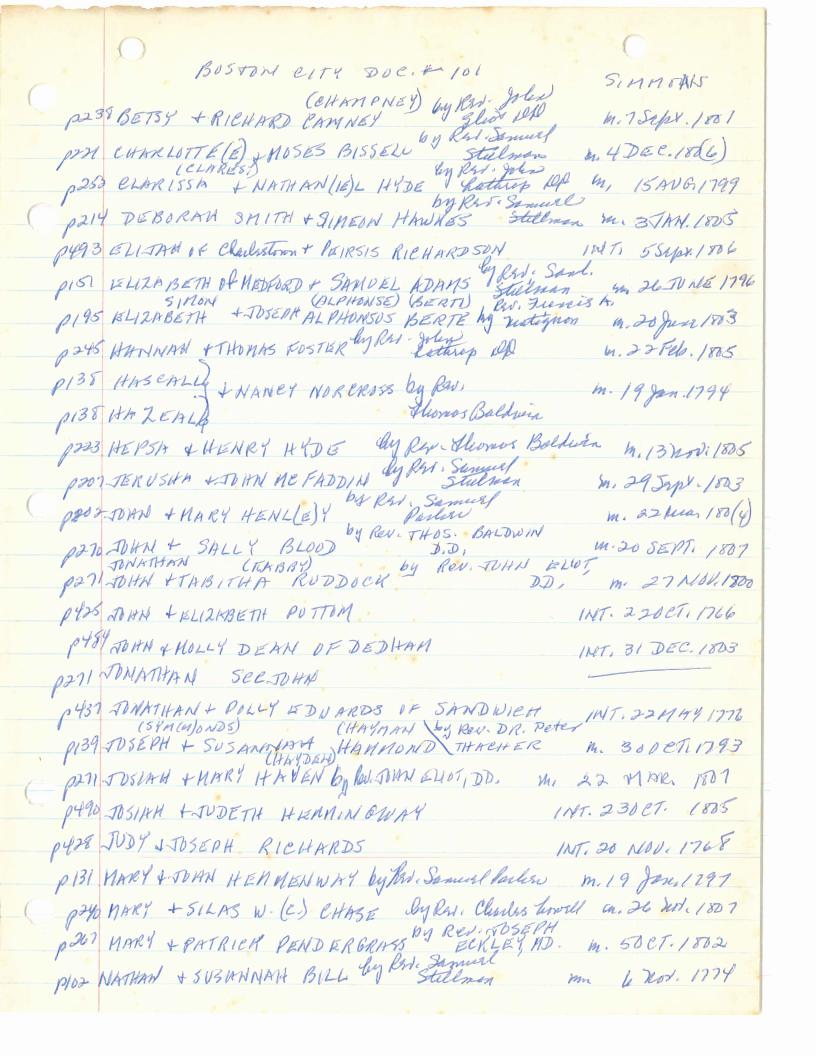 BOSTON CITY DOC. # 101
SIMMONS
(CHAMPNEY) by Rev. John
p238 BETSY + RICHARD CAMNEY Eliot DD m. 7 Sept. 1801
by Rev. Samuel
p221 CHARLOTTE(E) + MOSES BISSELL Stillman m. 4 DEC. 180(6)
(CLARES) by Rev. John
p253 CLARISSA + NATHAN(IE)L HYDE Lathrop DD m. 15 AUG. 1799
by Rev. Samuel
p214 DEBORAH SMITH + SIMEON HAWNES Stillman m. 3 JAN. 1805
p493 ELIJAH OF Charlestown + PEIRSIS RICHARDSON INT. 5 Sept. 1806
by Rev. Saml.
p151 ELIZABETH of MEDFORD + SAMUEL ADAMS Stillman m. 26 JUNE 1796
SIMON (ALPHONSE) (BERTI) Rev. Francis A.
p195 ELIZABETH + JOSEPH ALPHONSUS BERTE by Matignon m. 20 June 1803
p245 HANNAH + THOMAS FOSTER by Rev. John Lathrop DD m. 22 Feb. 1805
p138 HASCALL
+ NANCY NORCROSS by Rev. m. 19 Jan. 1794
p138 HAZEALL Thomas Baldwin
p223 HEPSA + HENRY HYDE by Rev. Thomas Baldwin m. 13 Nov. 1805
by Rev. Samuel
p207 JERUSHA + JOHN MCFADDIN Stillman m. 29 Sept. 1803
by Rev. Samuel
p202 JOHN + MARY HENL(E)Y Parker m. 22 180(4)
by REV. THOS. BALDWIN
p270 JOHN + SALLY BLOOD D.D. m. 20 SEPT. 1807
JONATHAN (TABBY) by REV. JOHN ELIOT,
p271 JOHN + TABITHA RUDDOCK D.D. m. 27 NOV. 1800
p425 JOHN + ELIZABETH POTTOM INT. 22 OCT. 1766
p484 JOHN + MOLLY DEAN OF DEDHAM INT. 31 DEC. 1803
p271 JONATHAN SEE JOHN
p437 JONATHAN + POLLY EDWARDS OF SANDWICH INT. 22 MAY 1776
(SYM(M)ONDS) (HAYMAN by Rev. DR. Peter
p139 JOSEPH + SUSANNAH HAMMOND THACHER m. 3 OCT. 1793
(HAYDEN)
p271 JOSIAH + MARY HAVEN by Rev. JOHN ELIOT, DD. m. 22 MAR. 1807
p490 JOSIAH + JUDETH HEMMINGWAY INT. 23 OCT. 1805
p428 JUDY + JOSEPH RICHARDS INT. 20 NOV. 1768
p131 MARY + JOHN HEMMENWAY by Rev. Samuel Parker m. 19 Jan. 1797
p240 MARY + SILAS W. (C.) CHASE by Rev. Charles Lowell m. 26 Nov. 1807
by Rev. JOSEPH
p267 MARY + PATRICK PENDERGRASS ECKLEY, MD. m. 5 OCT. 1802
by Rev. Samuel
p102 NATHAN + SUSANNAH BILL Stillman m 6 Nov. 1774